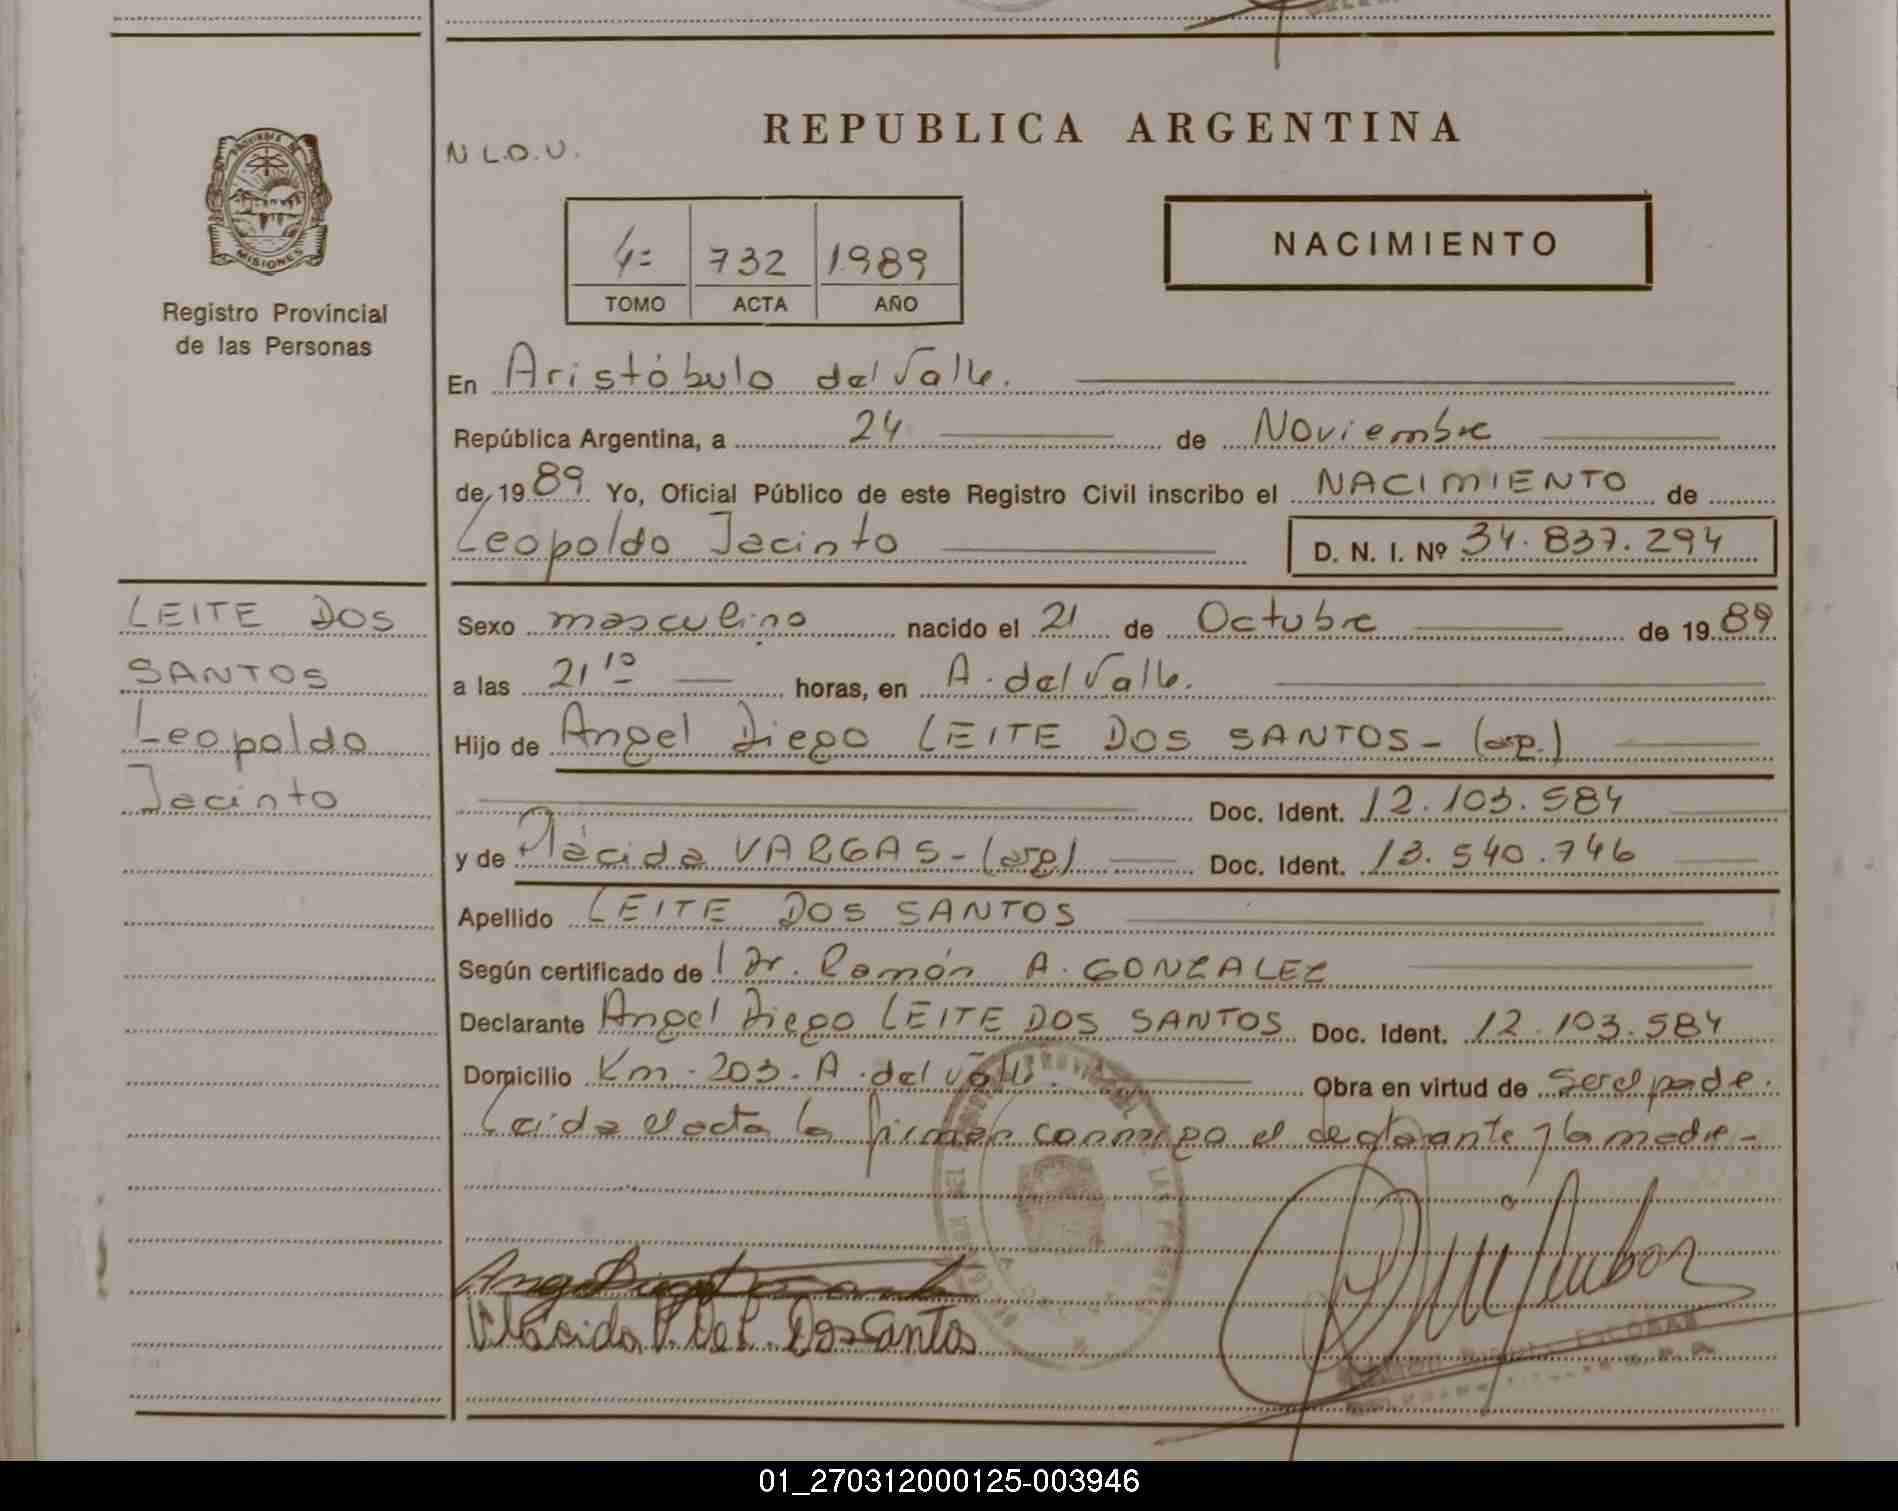 PROVINCIA DE
MISIONES
Registro Provincial
de las Personas
LEITE DOS
SANTOS
Leopoldo
Jacinto
N L.O.U.
REPUBLICA ARGENTINA
4= 732 1989
TOMO ACTA AÑO
NACIMIENTO
En Aristóbulo del Valle.
República Argentina, a 24 de Noviembre
de 1989 Yo, Oficial Público de este Registro Civil inscribo el NACIMIENTO de
Leopoldo Jacinto D. N. I. Nº 34.837.294
Sexo masculino nacido el 21 de Octubre de 1989
a las 21 10 horas, en A. del Valle.
Hijo de Angel Diego LEITE DOS SANTOS - (arg.)
Doc. Ident. 12.103.584
y de Plácida VARGAS - (arg) Doc. Ident. 13.540.746
Apellido LEITE DOS SANTOS
Según certificado de Dr. Ramón A. GONZALEZ
Declarante Angel Diego LEITE DOS SANTOS Doc. Ident. 12.103.584
Domicilio Km. 203. A. del Valle. Obra en virtud de ser el padre.
Leida el acta la firman conmigo el declarante y la madre -
Plácida V. de L. Dos Santos
ESCOBAR
01_270312000125-003946